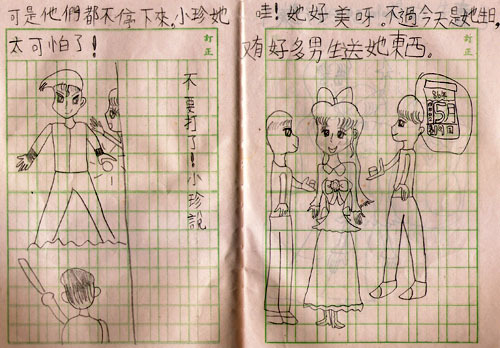 可是他們都不停下來,小珍她
太可怕了!
訂正
不要打了!小珍說
哇!她好美呀。不過今天是她生日,
有好多男生送她東西。
訂正
5